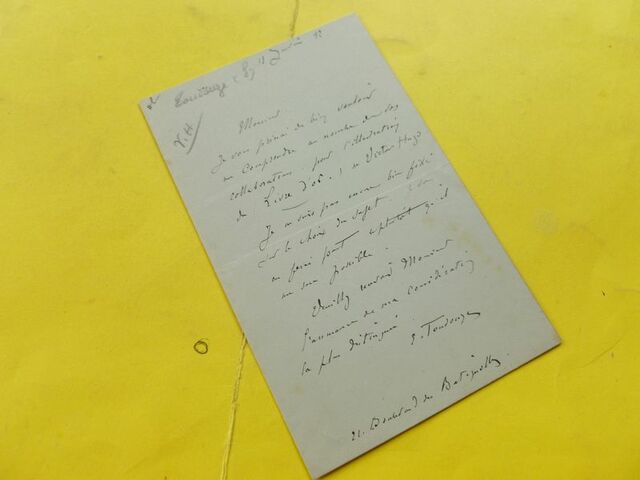 Toudouze
V.H
Monsieur
Je vous prierai de bien vouloir
me comprendre au nombre de vos
collaborateurs pour l'illustration
du Livre d'or de Victor Hugo
Je ne suis pas encore bien fixé
sur le choix du sujet.
en ferai part aussitôt qu'il
me sera possible.
Veuillez recevoir Monsieur
l'assurance de ma considération
la plus distinguée
E. Toudouze
21. Boulevard des Batignolles